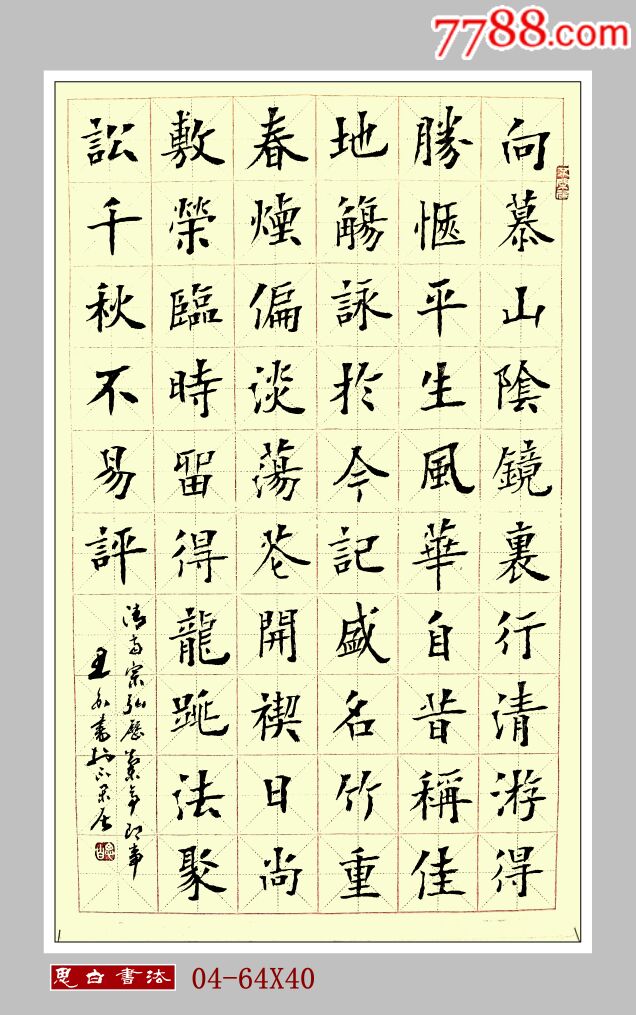 7788.com
向慕山陰鏡裏行清游得
勝愜平生風華自昔稱佳
地觴詠扵今記盛名竹重
春煙偏淡蕩花開禊日尚
敷榮臨時留得龍跳法聚
訟千秋不易評
清高宗弘曆蘭亭即事
思白書法 04-64X40